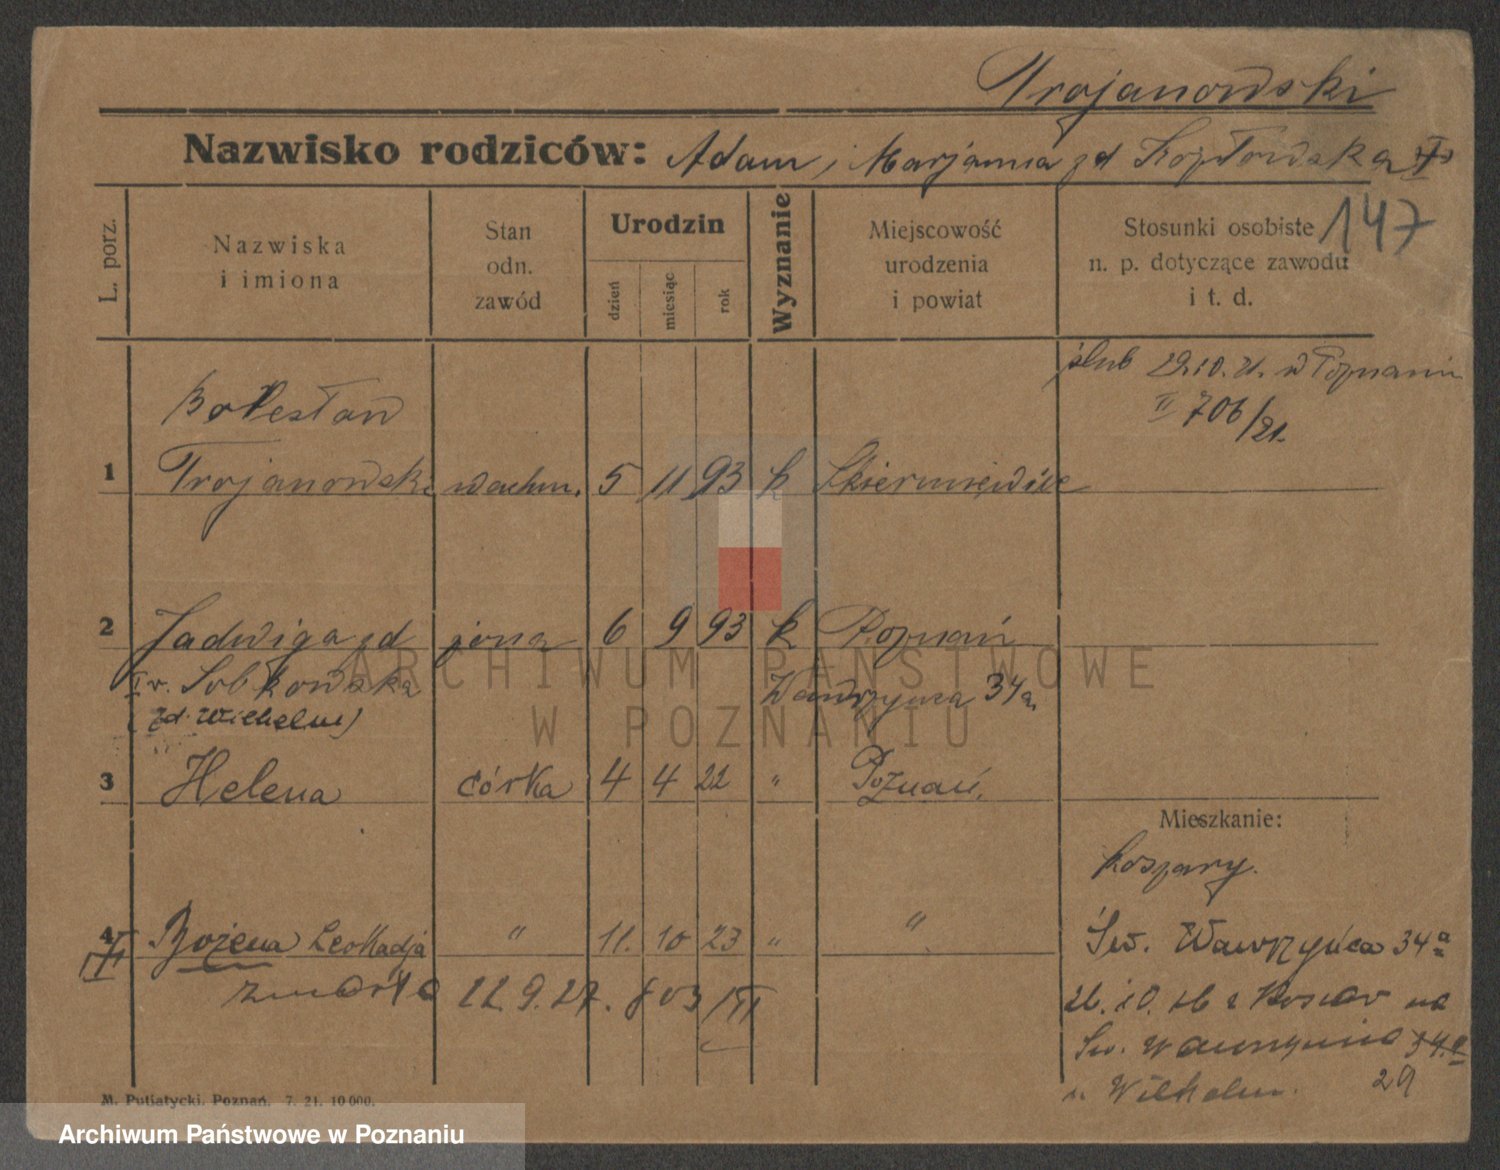 Trojanowski
Nazwisko rodziców: Adam i Marjanna zd Kozłowska
147
L. porz.
Nazwiska
i imiona
Stan
odn.
zawód
Urodzin
dzień
miesiąc
rok
Wyznanie
Miejscowość
urodzenia
i powiat
Stosunki osobiste
n. p. dotyczące zawodu
i t. d.
ślub 29.10.21. w Poznaniu
II 706/21.
Bolesław
1 Trojanowski wachm. 5 11 93 k Skierniewice
2 Jadwiga zd żona 6 9 93 k Poznań
I v. Sobkowska Wawrzyńca 34a
(zd. Wilhelm)
3 Helena córka 4 4 22 " Poznań.
Mieszkanie:
Koszary.
4 Bożena Leokadja " 11. 10 23 " "
Św. Wawrzyńca 34a
zmarła 22.9.27. 803/III
26.10.26 z Koszar na
Św. Wawrzyńca 34a
29
u Wilhelm.
M. Putiatycki. Poznań. 7. 21. 10 000.
ARCHIWUM PAŃSTWOWE
W POZNANIU
Archiwum Państwowe w Poznaniu